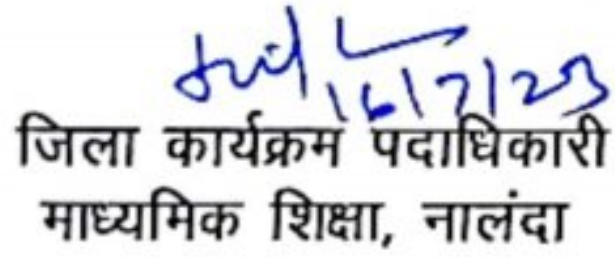 16/7/23
जिला कार्यक्रम पदाधिकारी
माध्यमिक शिक्षा, नालंदा